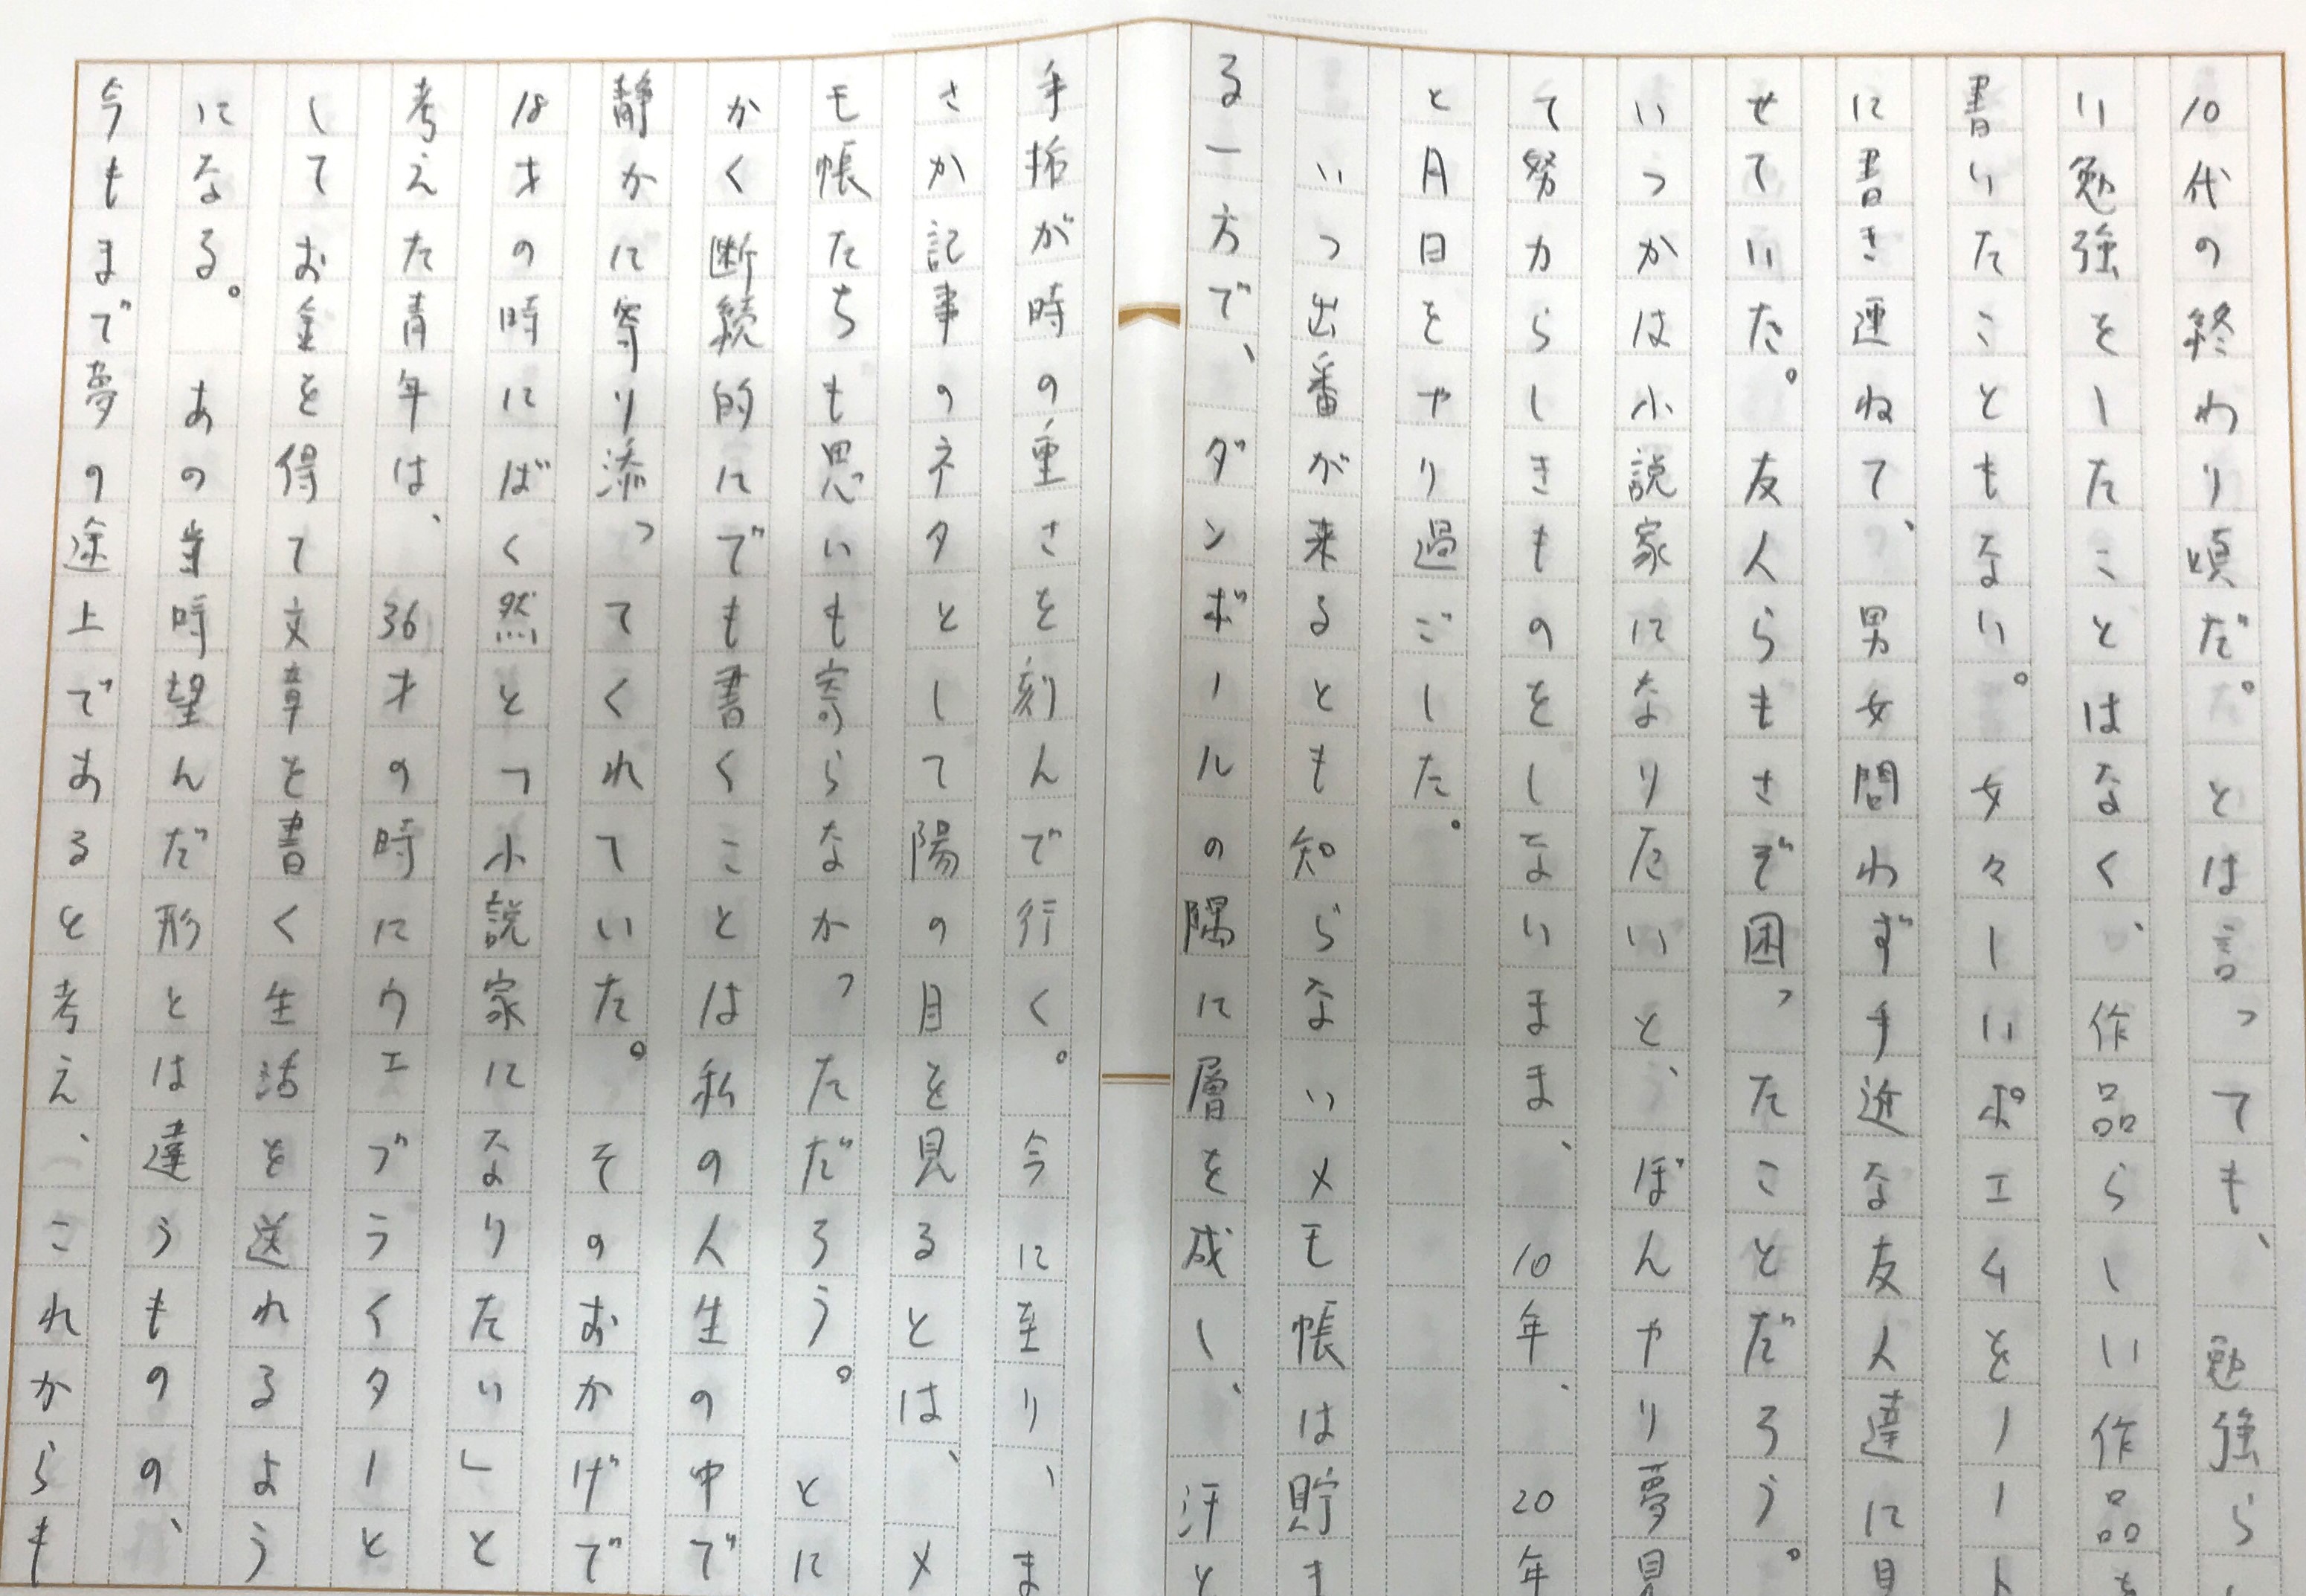 10代の終わり頃だ。とは言っても、勉強ら
い勉強をしたことはなく、作品らしい作品
書いたこともない。女々しいポエムをノート
に書き連ねて、男女問わず手近な友人達に見
せていた。友人らもさぞ困ったことだろう。
いつかは小説家になりたいと、ぼんやり夢見
て努力らしきものをしないまま、10年、20年
と月日をやり過ごした。
いつ出番が来るとも知らないメモ帳は貯ま
る一方で、ダンボールの隅に層を成し、汗と
手垢が時の重さを刻んで行く。今に至り、ま
さか記事のネタとして陽の目を見るとは、メ
モ帳たちも思いも寄らなかっただろう。とに
かく断続的にでも書くことは私の人生の中で
静かに寄り添ってくれていた。そのおかげで
18才の時にばく然とつ小説家になりたい」と
考えた青年は、36才の時にウエブライターと
してお金を得て文章を書く生活を送れるよう
になる。あの当時望んだ形とは違うものの、
今もまで夢の途上であると考え、これからも